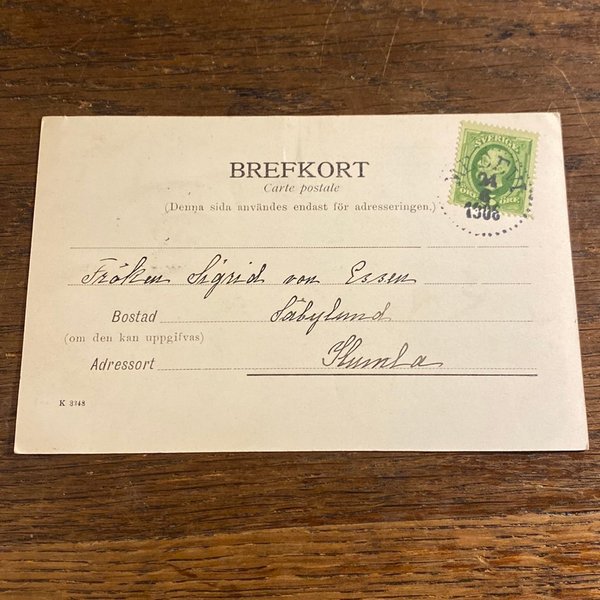 BREFKORT
Carte postale
(Denna sida användes endast för adresseringen.)
SVERIGE
ÖRE ÖRE
1908
Fröken Sigrid von Essen
Bostad Säbylund
(om den kan uppgifvas)
Adressort Kumla
K 3348